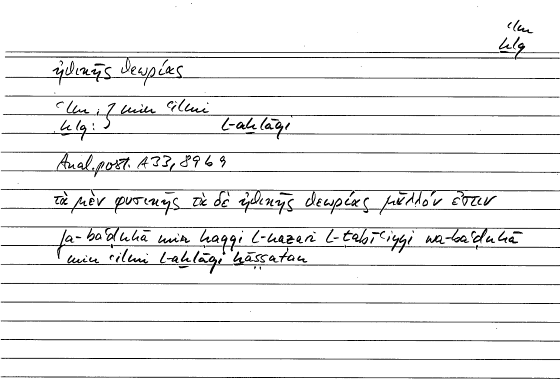 ʿlm
ḫlq
ἠθικῆς θεωρίας
ʿlm : } min ʿilmi
ḫlq : l-aḫlāqi
Anal. post. A33, 89b9
τὰ μὲν φυσικῆς τὰ δὲ ἠθικῆς θεωρίας μᾶλλόν ἐστιν
fa-baʿḍuhā min ḥaqqi l-naẓari l-ṭabīʿiyyi wa-baʿḍuhā
min ʿilmi l-aḫlāqi ḫāṣṣatan